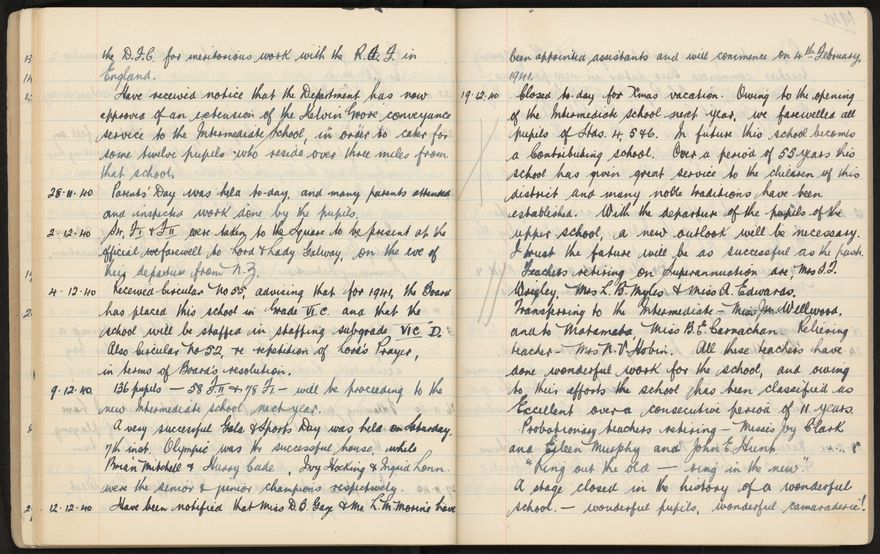 the D.F.C. for meritorious work with the R.A.F. in
England.
Have received notice that the Department has now
approved of an extension of the Kelvin Grove conveyance
service to the Intermediate School, in order to cater for
some twelve pupils who reside over three miles from
that school.
28.11.40 Parents' Day was held to-day, and many parents attended
and inspected work done by the pupils.
2.12.40 Srs. F I & F II were taken to the Square to be present at the
official farewell to Lord & Lady Galway, on the eve of
their departure from N.Z.
4.12.40 Received Circular No 55, advising that for 1941, the Board
has placed this school in Grade VI C. and that the
school will be staffed in staffing subgrade VI C D.
Also Circular No 52 re repetition of Lord's Prayer,
in terms of Board's resolution.
9.12.40. 136 pupils — 58 F. II & 78 F. I — will be proceeding to the
new Intermediate school next year.
A very successful Gala & Sports Day was held on Saturday,
7th inst. Olympic was the successful house, while
Brian Mitchell & Harry Cade, Ivy Hocking & Ingrid Lonn
were the senior & junior champions respectively.
12.12.40 Have been notified that Miss D.B. Gay & Mr. L. McMorine have
1941
been appointed assistants and will commence on 4th February,
1941.
19.12.40 Closed to-day for Xmas vacation. Owing to the opening
of the Intermediate school next year, we farewelled all
pupils of Stds. 4, 5 & 6. In future this school becomes
a Contributing school. Over a period of 55 years this
school has given great service to the children of this
district and many noble traditions have been
established. With the departure of the pupils of the
upper school, a new outlook will be necessary.
I trust the future will be as successful as the past.
Teachers retiring on Superannuation are:- Mrs I.I.
Wrigley, Mrs L.B. Myles & Miss A. Edwards.
Transferring to the Intermediate — Miss J.M. Wellwood,
and to Matamata — Miss B.E. Carnachan. Relieving
teacher — Mrs N.V. Hobin. All these teachers have
done wonderful work for the school, and owing
to their efforts the school has been classified as
Excellent over a consecutive period of 11 years.
Probationary teachers retiring — Misses Joy Clark
and Eileen Murphy and John E. Hunt.
"Ring out the old — ring in the new".
A stage closed in the history of a wonderful
school. — wonderful pupils, wonderful camaraderie!